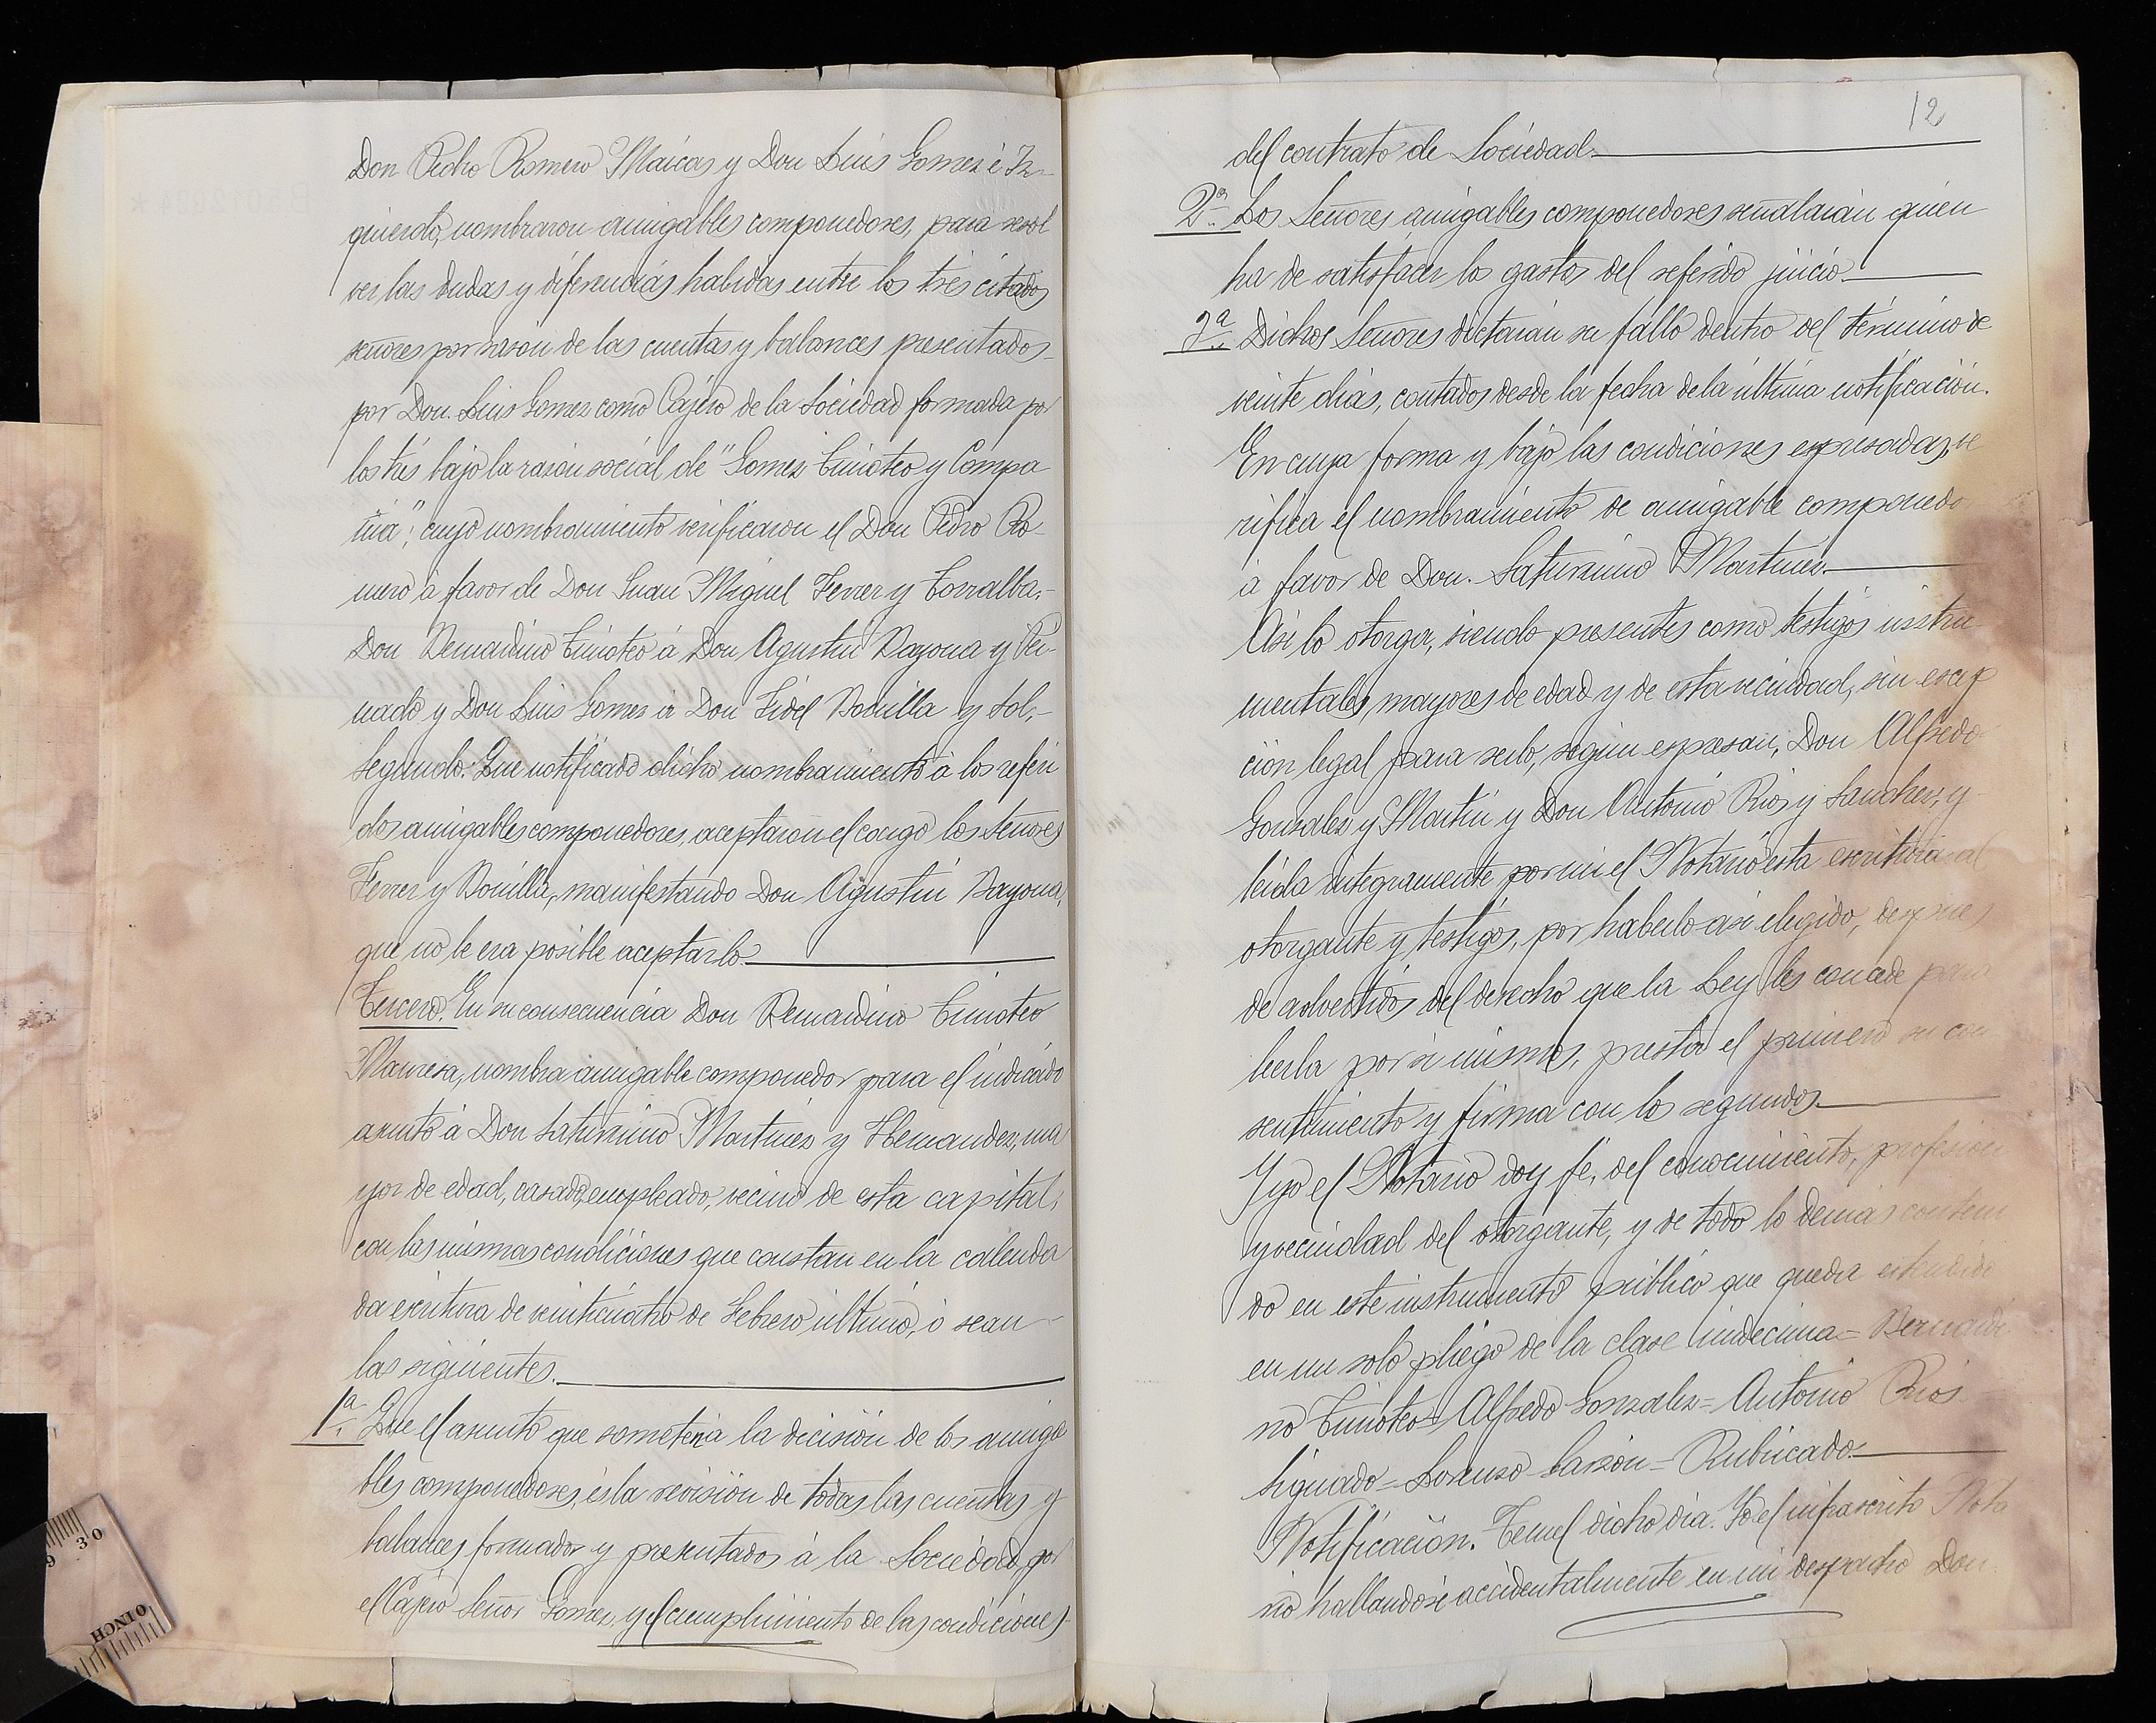 Don Pedro Romero Maicas y Don Luis Gomez é Iz-
quierdo, nombraron amigables componedores, para resol
ver las dudas y diferencias habidas entre los tres citados
señores por razon de las cuentas y balances presentados
por Don Luis Gomez como Cajero de la Sociedad formada por
los tres bajo la razon social de "Gomez Timoteo y Compa
ñia"; cuyo nombramiento verificaron el Don Pedro Ro-
mero á favor de Don Juan Miguel Ferrer y Torralba,-
Don Bernardino Timoteo á Don Agustin Bayona y Pei-
nado y Don Luis Gomez á Don Fidel Bonilla y Sol,-
Segundo: Que notificado dicho nombramiento á los referi
dos amigables componedores, aceptaron el cargo los Señores
Ferrer y Bonilla, manifestando Don Agustin Bayona,
que no le era posible aceptarlo.
Tercero. En su consecuencia Don Bernardino Timoteo
Manresa, nombra amigable componedor para el indicado
asunto á Don Saturnino Martinez y Hernandez, ma
yor de edad, casado, empleado, vecino de esta capital,
con las mismas condiciones que constan en la calenda
da escritura de veinticuatro de Febrero último, ó sean
las siguientes.
1ª. Que el asunto que someten á la decisión de los amiga
bles componedores, es la revisión de todas las cuentas y
balances formados y presentados á la Sociedad, por
el Cajero Señor Gomez, y el cumplimiento de las condiciones
12
del contrato de Sociedad.
2ª. Los Señores amigables componedores señalarán quien
ha de satisfacer los gastos del referido juicio.
3ª. Dichos Señores dictarán su fallo dentro del término de
veinte dias, contados desde la fecha de la última notificación.
En cuya forma y bajo las condiciones expresadas, ve
rifica el nombramiento de amigable componedo
á favor de Don Saturnino Martinez.
Asi lo otorga, siendo presentes como testigos instru
mentales, mayores de edad y de esta vecindad, sin escep
ción legal para serlo, según expresan, Don Alfredo
Gonzalez y Martin y Don Antonio Rios y Sanchez, y
leida integramente por mi el Notario esta escritura al
otorgante y testigos, por haberlo asi elegido, despues
de advertidos del derecho que la Ley les concede para
leerla por si mismos, presta el primero su con
sentimiento y firma con los segundos.
Y yo el Notario doy fé, del conocimiento, profesion
y vecindad del otorgante, y de todo lo demas conteni
do en este instrumento público que queda estendido
en un solo pliego de la clase undecima = Bernardi
no Timoteo = Alfredo Gonzalez = Antonio Rios
Signado = Lorenzo Garzon = Rubricado.
Notificación. Teruel dicho dia. Yo el infrascrito Nota
rio hallandose accidentalmente en mi despacho Don